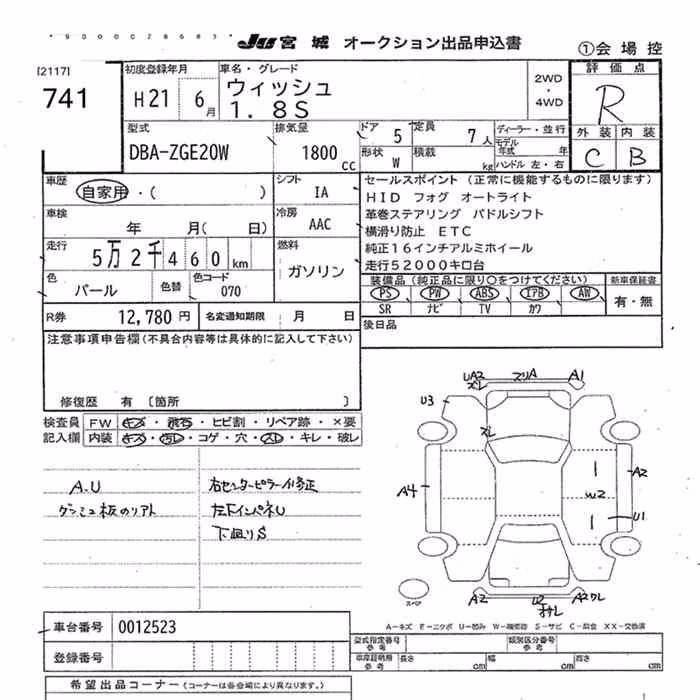 9000028683
JU 宮城 オークション出品申込書
①会場控
[2117]
741
初度登録年月
H21 6月
車名・グレード
ウィッシュ
1.8S
2WD
・
4WD
評価点
R
外装 内装
C B
型式
DBA-ZGE20W
排気量
1800 CC
ドア 5
定員 7人
ディーラー・並行
モデル年式 年
形状 W
積載 kg
ハンドル 左・右
車歴 自家用・( )
シフト IA
車検 年 月( 日)
冷房 AAC
走行 5万2千460km
燃料 ガソリン
色 パール
色替
色コード 070
R券 12,780円
名変通知期限 月 日
セールスポイント (正常に機能するものに限ります)
HID フォグ オートライト
革巻ステアリング パドルシフト
横滑り防止 ETC
純正16インチアルミホイール
走行52000キロ台
装備品(純正品に限り○をつけてください)
新車保証書
PS PW ABS エアB AW
有・無
SR ナビ TV カワ
後日品
注意事項申告欄(不具合内容等は具体的に記入して下さい)
修復歴 有 〔箇所 〕
検査員 FW キズ・飛石・ヒビ割・リペア跡・×要
記入欄 内装 キズ・汚レ・コゲ・穴・スレ・キレ・破レ
A.U
ダッシュ板のリアト
右センターピラー小修正
左下インパネU
下回りS
UA2
ズレ
スリA
A1
U3
ズレ
A4
W2
A2
U1
スペア
A2
U2
オサレ
A2ワレ
A－キズ E－エクボ U－凹み W－補修跡 S－サビ C－腐食 XX－交換済
車台番号 0012523
登録番号
型式指定番号 参考
類別区分番号 参考
車庫証明用 参考
長さ cm 幅 cm 高さ cm
希望出品コーナー(コーナーは各会場により異なります。)